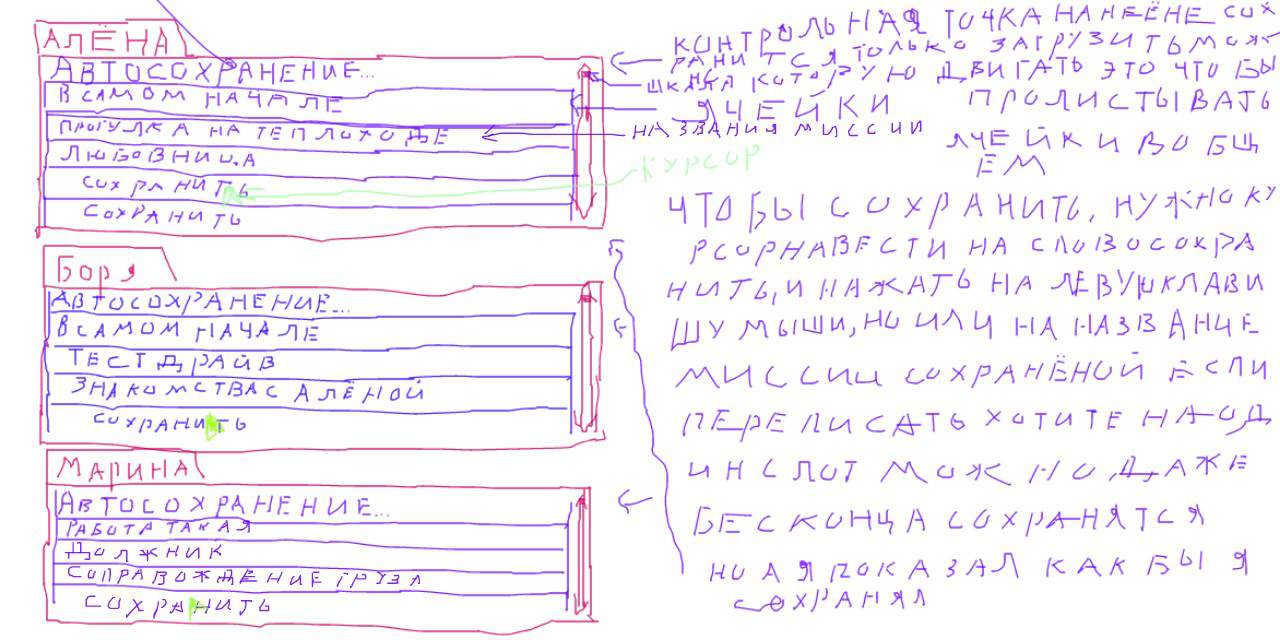 АЛЁНА
АВТОСОХРАНЕНИЕ...
В САМОМ НАЧАЛЕ
ПРОГУЛКА НА ТЕПЛОХОДЕ
ЛЮБОВНИЦА
СОХРАНИТЬ
СОХРАНИТЬ
БОРЯ
АВТОСОХРАНЕНИЕ...
В САМОМ НАЧАЛЕ
ТЕСТ ДРАЙВ
ЗНАКОМСТВА С АЛЁНОЙ
СОХРАНИТЬ
МАРИНА
АВТОСОХРАНЕНИЕ...
РАБОТА ТАКАЯ
ДОЛЖНИК
СОПРАВОЖДЕНИЕ ГРУЗА
СОХРАНИТЬ
КОНТРОЛЬНАЯ ТОЧКА НА НЕЁ НЕ СОХ
РАНИТСЯ ТОЛЬКО ЗАГРУЗИТЬ МОЖ
НО
ШКАЛА КОТОРУЮ ДВИГАТЬ ЭТО ЧТО БЫ
ЯЧЕЙКИ
ПРОЛИСТЫВАТЬ
НАЗВАНИЯ МИССИИ
ЯЧЕЙКИ ВОБЩ
ЕМ
КУРСОР
ЧТОБЫ СОХРАНИТЬ, НУЖНО КУ
РСОР НАВЕСТИ НА СЛОВО СОХРА
НИТЬ, И НАЖАТЬ НА ЛЕВУЮ КЛАВИ
ШУ МЫШИ, НО ИЛИ НА НАЗВАНИЕ
МИССИИ СОХРАНЁНОЙ ЕСЛИ
ПЕРЕПИСАТЬ ХОТИТЕ НА ОД
ИН СЛОТ МОЖНО ДАЖЕ
БЕСКОНЦА СОХРАНЯТСЯ
НО А Я ПОКАЗАЛ КАК БЫ Я
СОХРАНЯЛ